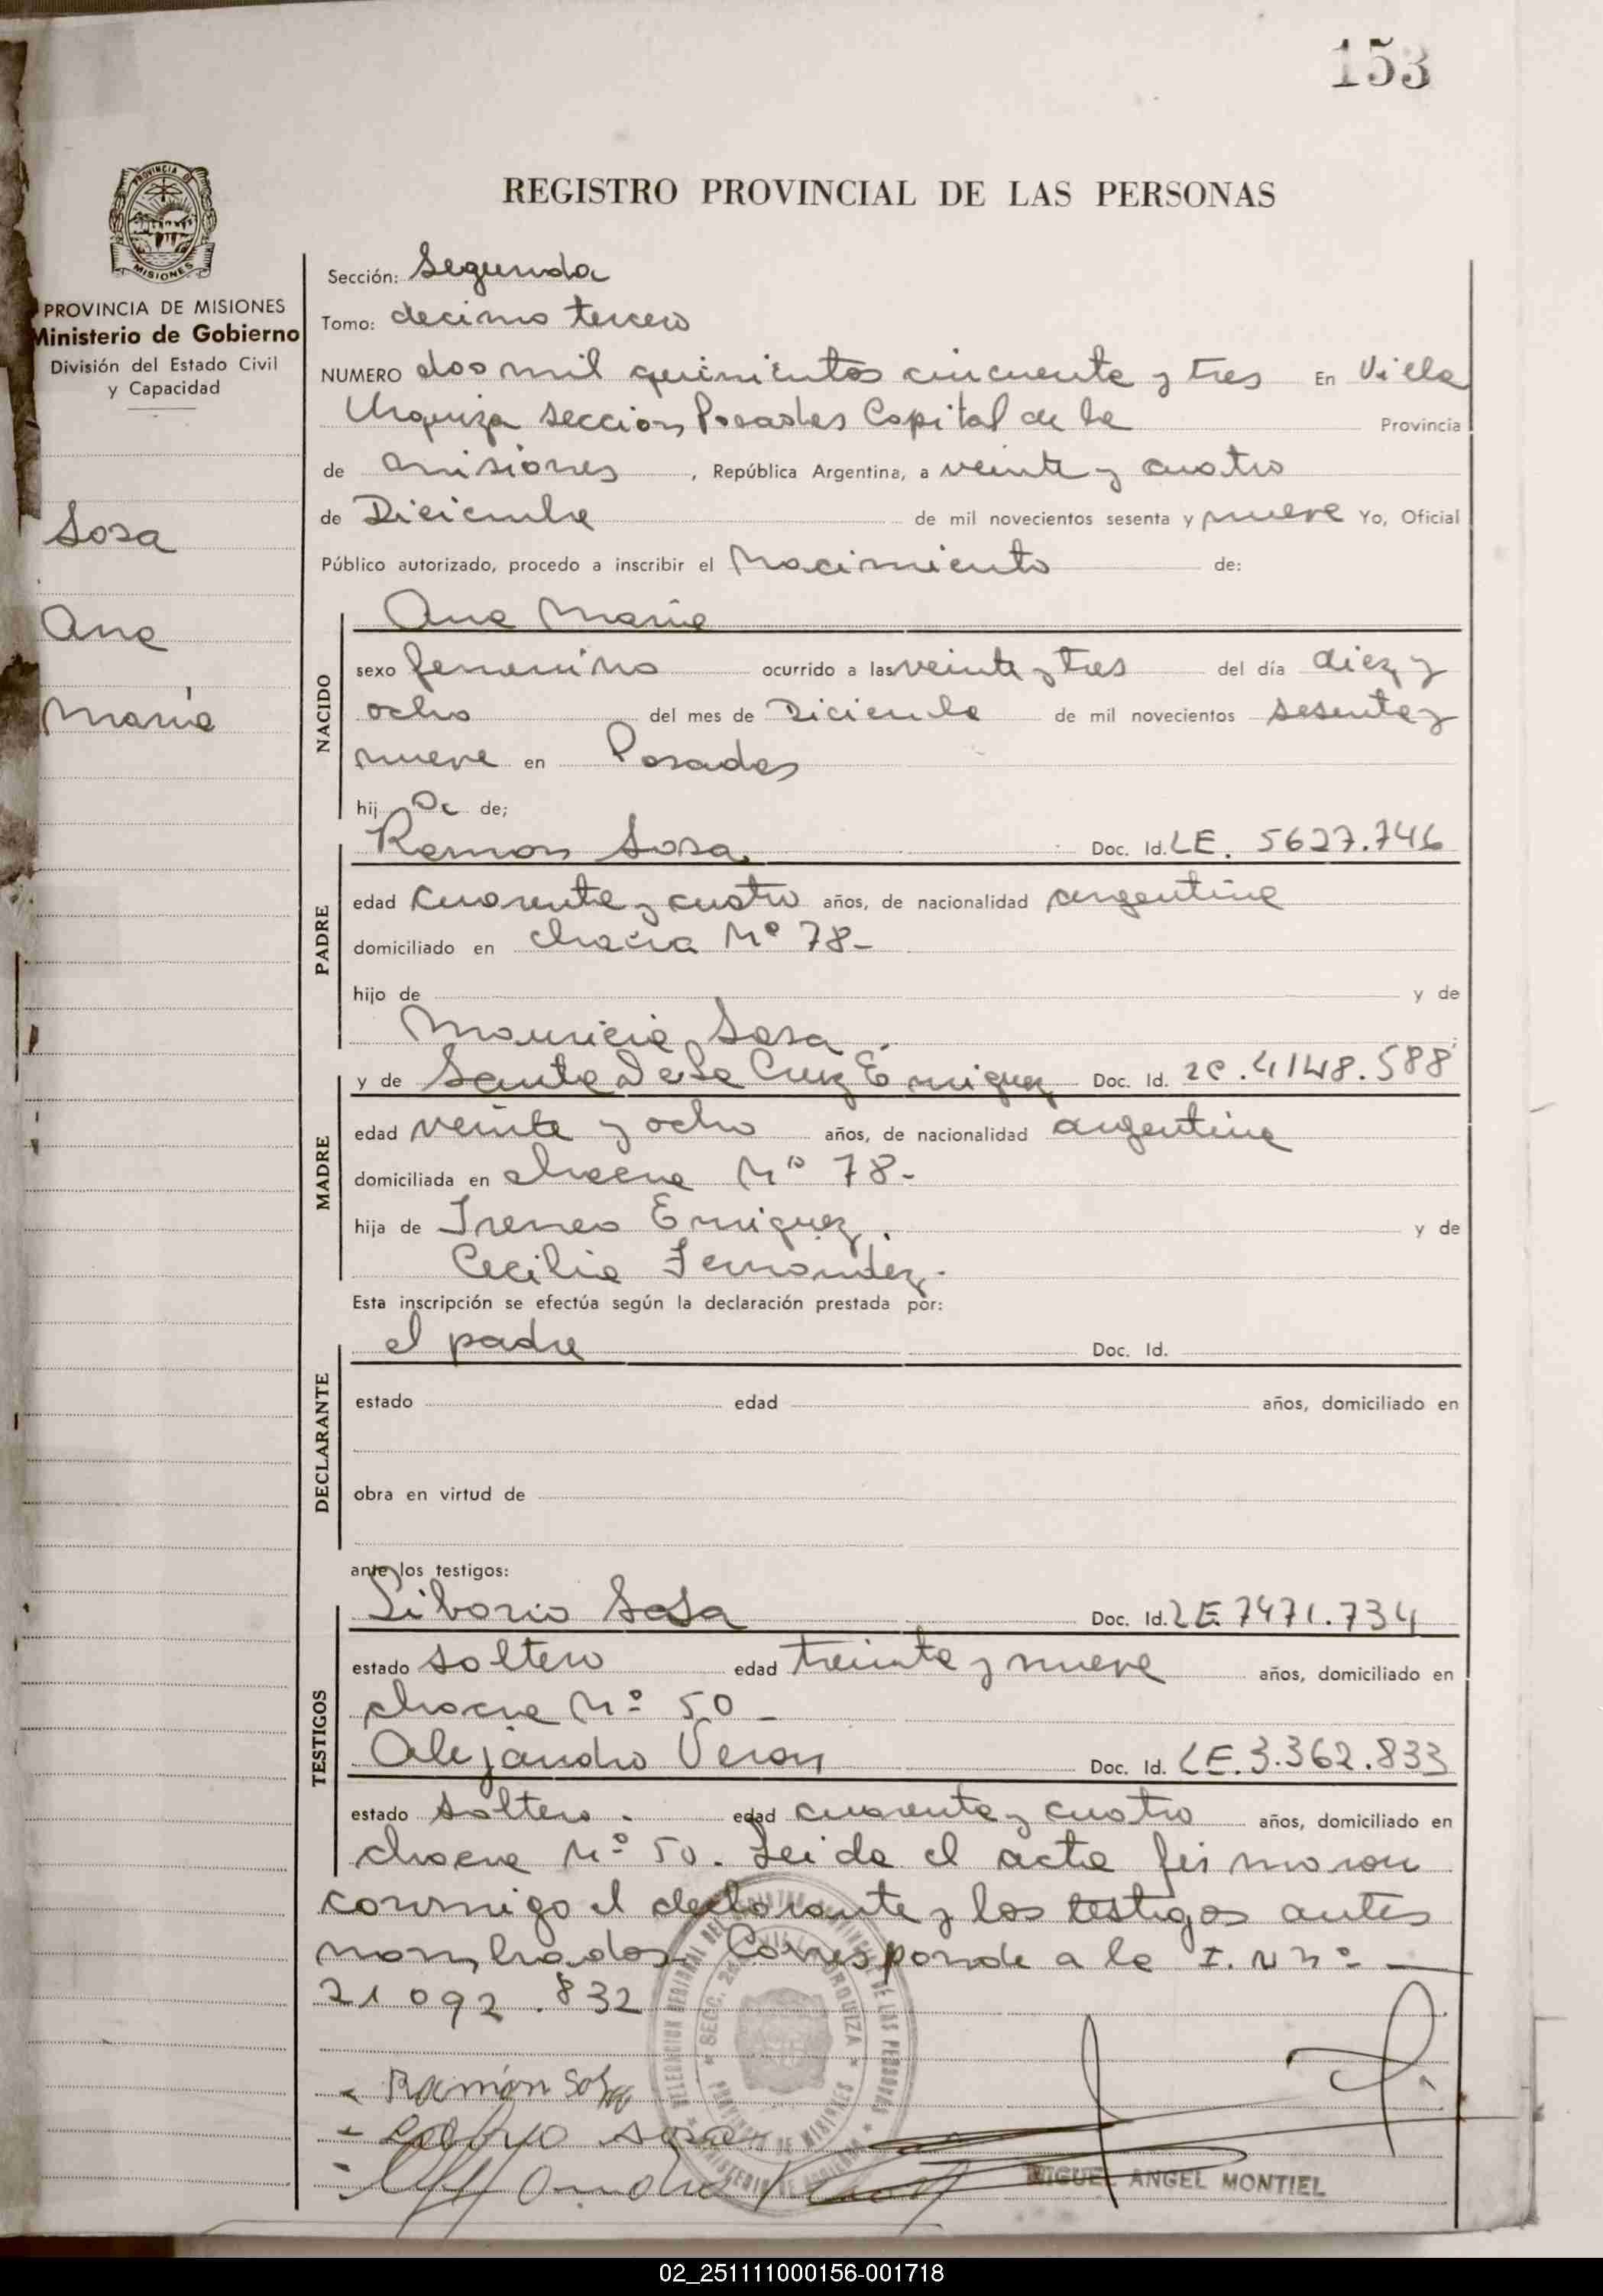 153
REGISTRO PROVINCIAL DE LAS PERSONAS
PROVINCIA DE MISIONES
Ministerio de Gobierno
División del Estado Civil
y Capacidad
Sosa
Ana
María
Sección: Segunda
Tomo: decimo tercero
NUMERO dos mil quinientos cincuenta y tres En Villa
Urquiza seccion Posadas Capital de la Provincia
de misiones, República Argentina, a veinte y cuatro
de Diciembre de mil novecientos sesenta y nueve Yo, Oficial
Público autorizado, procedo a inscribir el Nacimiento de:
NACIDO
Ana Maria
sexo femenino ocurrido a las veinte y tres del día diez y
ocho del mes de Diciembre de mil novecientos sesenta y
nueve en Posadas
hij a de;
PADRE
Ramon Sosa Doc. Id. LE. 5627.746
edad cuarenta y cuatro años, de nacionalidad argentina
domiciliado en chacra Nº 78-
hijo de y de
Mauricia Sosa.
MADRE
y de Santa De La Cruz Enriquez Doc. Id. 4148.588
edad veinte y ocho años, de nacionalidad argentina
domiciliada en chacra Nº 78-
hija de Ireneo Enriquez. y de
Cecilia Fernandez.
Esta inscripción se efectúa según la declaración prestada por:
DECLARANTE
el padre Doc. Id.
estado edad años, domiciliado en
obra en virtud de
ante los testigos:
TESTIGOS
Liborio Sosa Doc. Id. LE 7471.734
estado soltero edad treinta y nueve años, domiciliado en
chacra Nº 50-
Alejandro Veron Doc. Id. LE. 3.362.833
estado soltero. edad cuarenta y cuatro años, domiciliado en
chacra Nº 50. Leida el acta firmaron
conmigo el declarante y los testigos antes
nombrados. Corresponde a la I. N nº —
21 092.832
Ramón Sosa
MIGUEL ANGEL MONTIEL
02_251111000156-001718